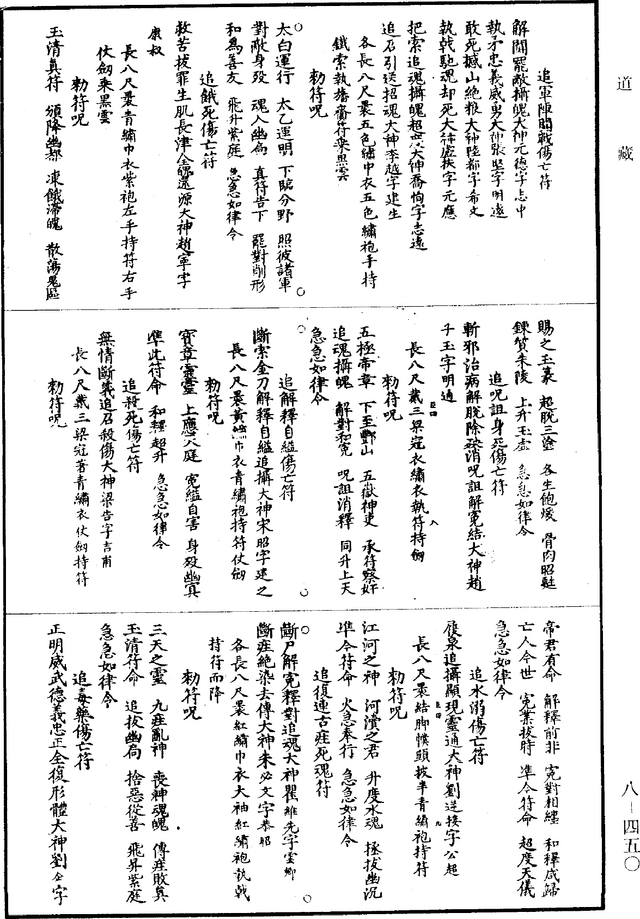 道藏
追軍陣鬪戰傷亡符
解閗罷敵攝魄大神元德字志中
執矛忠義威勇大神張堅字明遠
敢死撼山絶粮大神陸都字希文
執戟馳魂却死大神虛挾字元應
把索追魂攝魄超世大神喬恂字志遠
追召引送招魂大神李越字建生
各長八尺裹五色繡巾衣五色繡袍手持
鐵索執旛齎符乘黑雲
勑符呪
太白運行 太乙運明 下臨分野 照彼諸軍
對敵身殁 魂入幽扃 真符告下 罷對削形
和爲善友 飛升紫庭 急急如律令
追餓死傷亡符
救苦拔罪生肌長津全體還源大神趙寧字
康叔
長八尺裹青繡巾衣紫袍左手持符右手
仗劒乘黑雲
勑符呪
玉清真符 頒降幽都 凍餓滯魄 散蕩鬼區
賜之玉豪 超脫三塗 各生飽煖 骨肉昭蘇
鍊質朱陵 上升玉虛 急急如律令
追呪詛身死傷亡符
斬邪治病解脫除殃消呪詛解寃結大神趙
子玉字明通
長八尺戴三梁冠衣繡衣執符持劒
勑符呪
五極帝章 下至酆山 五嶽神吏 承符察奸
追魂攝魄 解對和寃 呪詛消釋 同升上天
急急如律令
追解釋自縊傷亡符
斷索金刀解釋自縊追攝大神宋昭字建之
長八尺裹黃繡巾衣青繡袍持符仗劒
勑符呪
寳章靈靈 上應八庭 寃縊自害 身殁幽冥
凖此符命 和釋超升 急急如律令
追殺死傷亡符
無情斷義追召殺傷大神梁告字吉甫
長八尺戴三梁冠著青繡衣仗劒持符
勑符呪
帝君有命 解釋前非 寃對相纏 和釋咸歸
亡人今世 寃業拔時 凖今符命 超度天儀
急急如律令
追水溺傷亡符
復泉追攝顯現靈通大神劉送接字公起
長八尺裹結脚幞頭披半青繡袍持符
勑符呪
江河之神 河瀆之君 升度水魂 拯拔幽沉
凖今符命 火急奉行 急急如律令
追復連古疰死魂符
斷尸解寃釋對追魂大神瞿維先字雲卿
斷疰絶染去傳大神朱必文字恭耶
各長八尺裹紅繡巾衣大袖紅繡袍執戟
持符而降
勑符呪
三天之靈 九疰亂神 喪神魂魄 傳疰敗真
玉清符命 追拔幽扃 捨惡從善 飛昇紫庭
急急如律令
追毒藥傷亡符
正明威武德義忠正全復形體大神劉仝字
八-四五〇